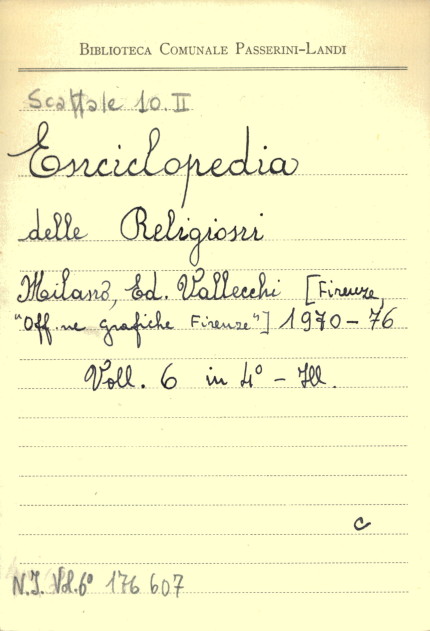 BIBLIOTECA COMUNALE PASSERINI-LANDI
Scaffale 10.II
Enciclopedia
delle Religioni
Milano, Ed. Vallecchi [Firenze,
"Off.ne grafiche Firenze"] 1970-76
Voll. 6 in 4° - Ill.
c
N.I. Vol.6° 176 607